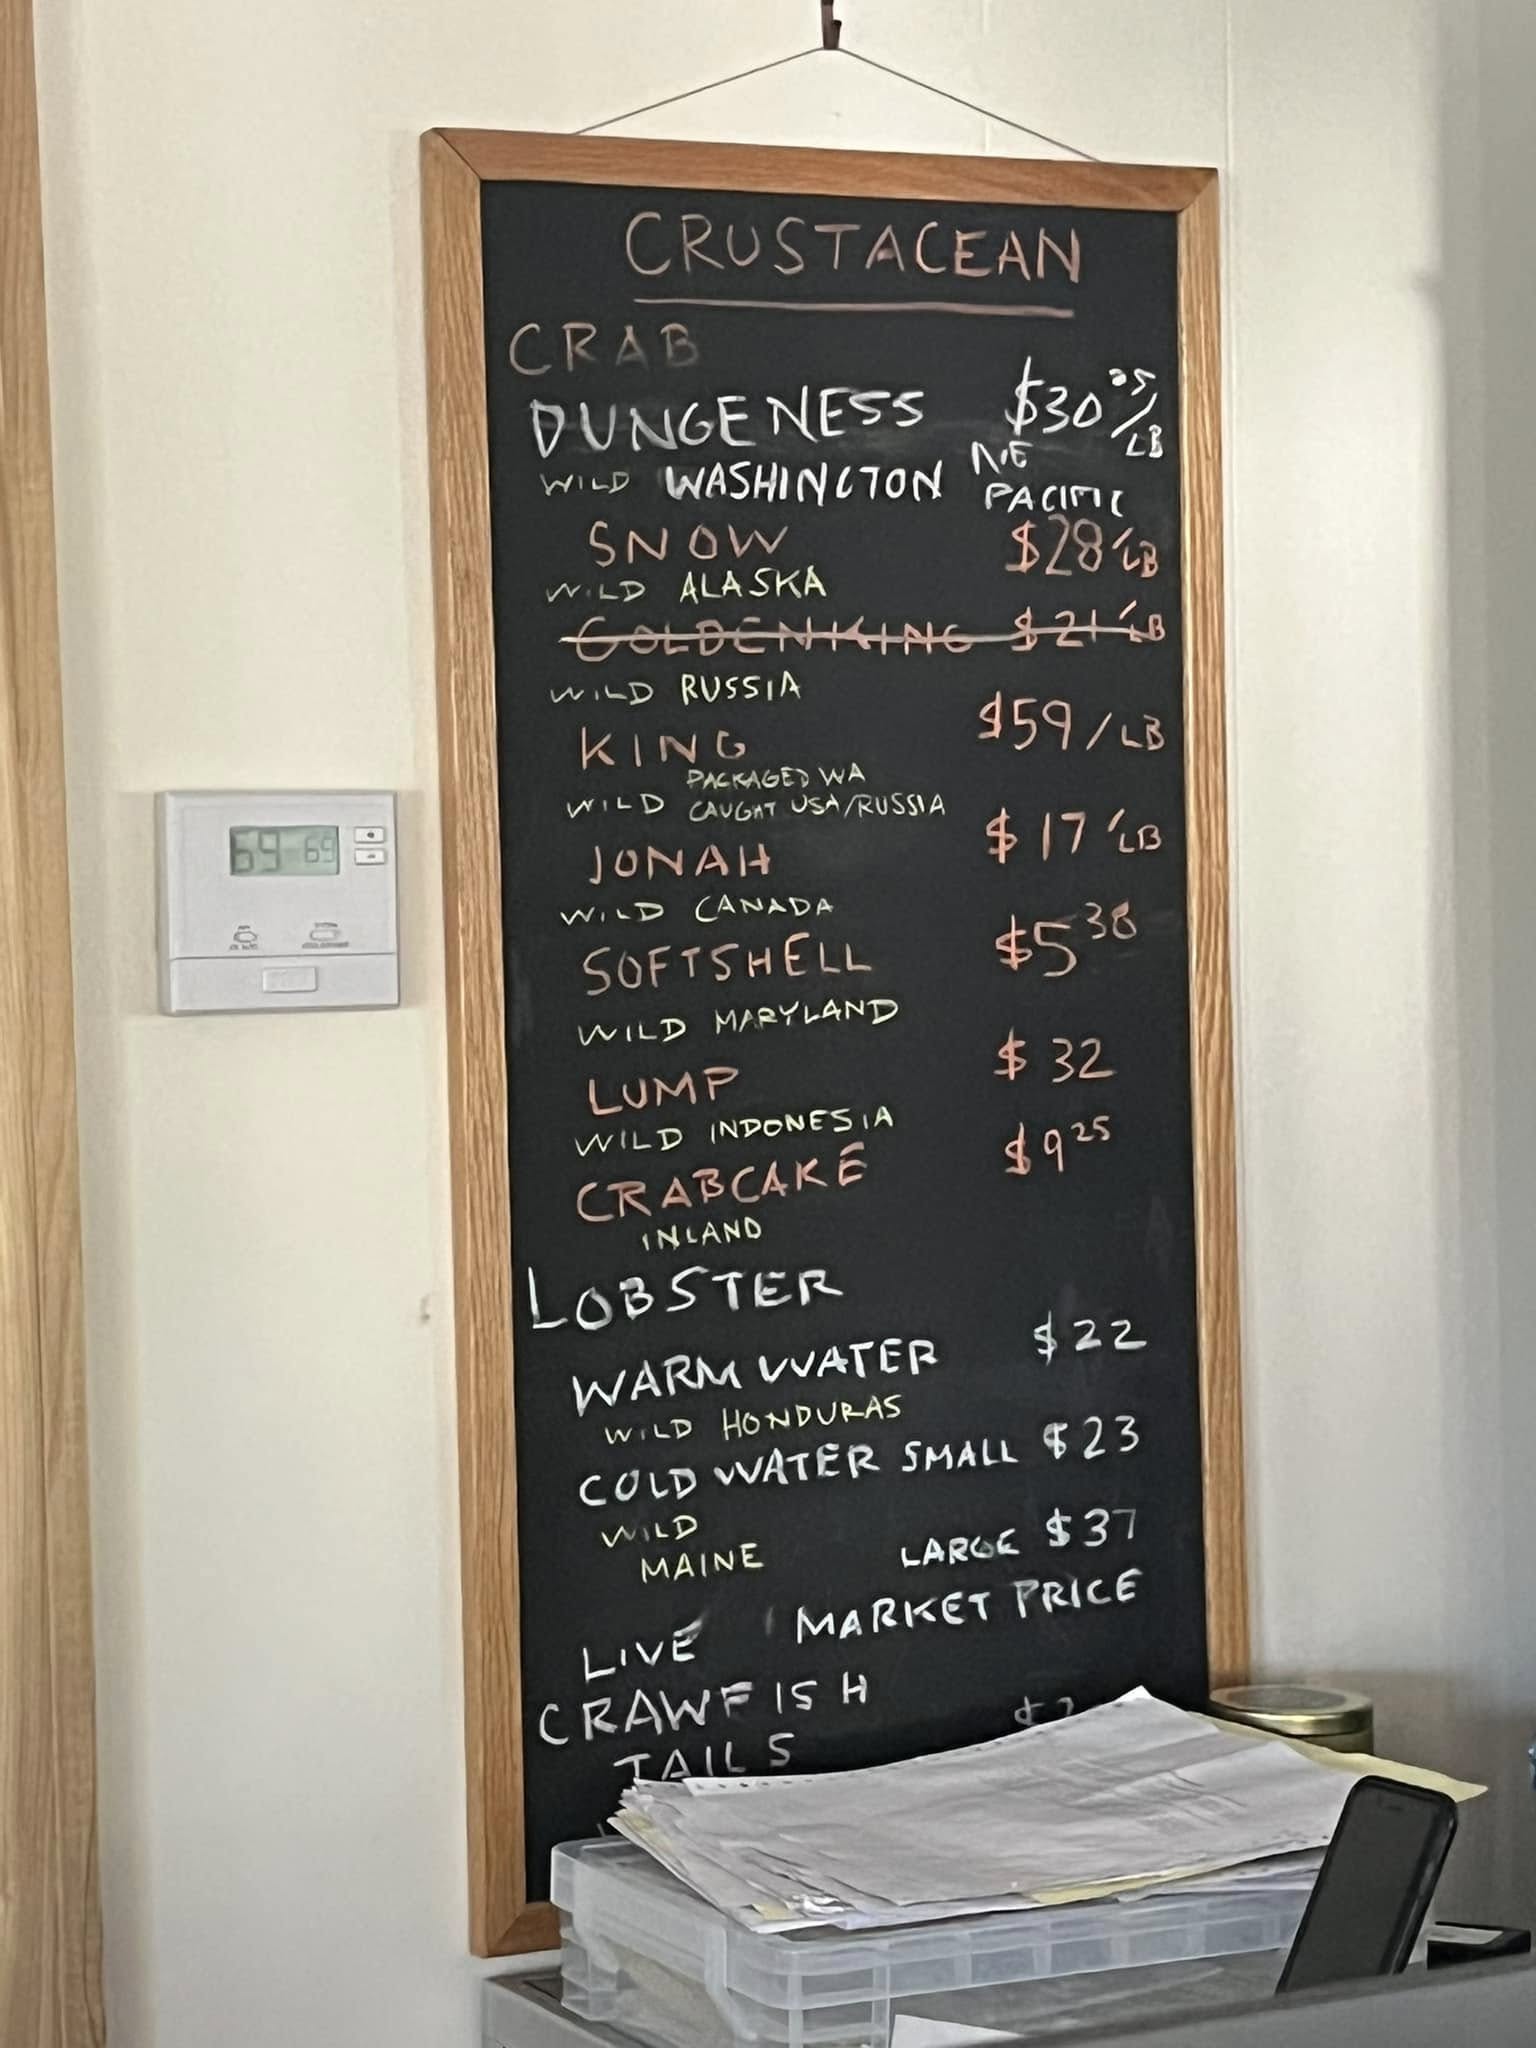 CRUSTACEAN
CRAB
DUNGENESS $30 25/LB
WILD WASHINGTON N.E PACIFIC
SNOW $28/LB
WILD ALASKA
GOLDEN KING $21/LB
WILD RUSSIA
KING $59/LB
PACKAGED WA
WILD CAUGHT USA/RUSSIA
JONAH $17/LB
WILD CANADA
SOFTSHELL $5 38
WILD MARYLAND
LUMP $32
WILD INDONESIA
CRABCAKE $9 25
INLAND
LOBSTER
WARM WATER $22
WILD HONDURAS
COLD WATER SMALL $23
WILD
MAINE LARGE $37
LIVE MARKET PRICE
CRAWFISH
TAILS
69 69